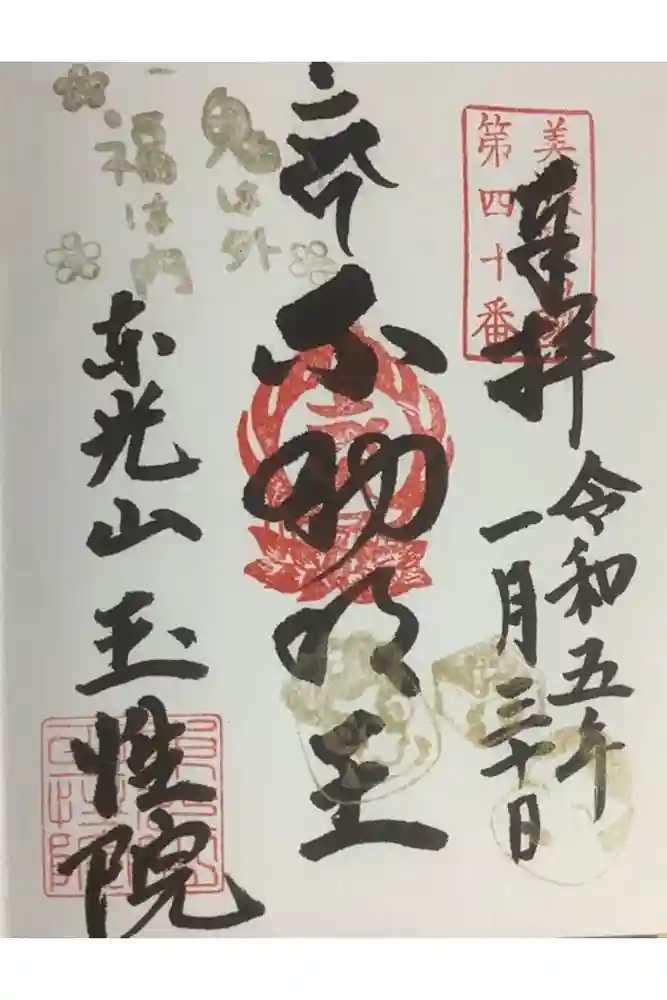 奉拝
第四十番
令和五年
一月三十日
不動明王
鬼は外
福は内
東光山
玉性院